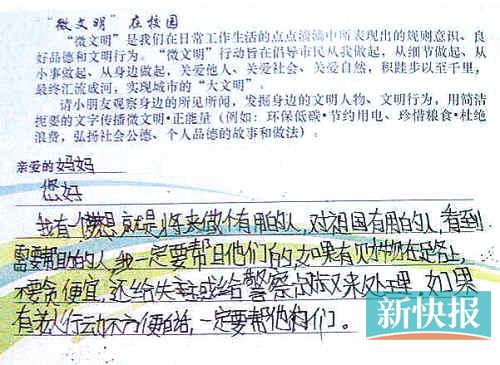 “微文明”在校园
“微文明”是我们在日常工作生活的点点滴滴中所表现出的规则意识、良
好品德和文明行为。“微文明”行动旨在倡导市民从我做起，从细节做起、从
小事做起、从身边做起，关爱他人、关爱社会、关爱自然，积跬步以至千里，
最终汇流成河，实现城市的“大文明”。
请小朋友观察身边的所见所闻，发掘身边的文明人物、文明行为，用简洁
扼要的文字传播微文明·正能量（例如：环保低碳·节约用电、珍惜粮食·杜绝
浪费，弘扬社会公德、个人品德的故事和做法）：
亲爱的妈妈
您好
我有个梦想就是将来做个有用的人，对祖国有用的人，看到
需要帮助的人，我一定要帮且他们的，如果有贝才物在足各上，
不要贪便宜，还给失主或给警察叔叔来处理，如果
有老人行动不方便的话，一定要帮他们。
新快报